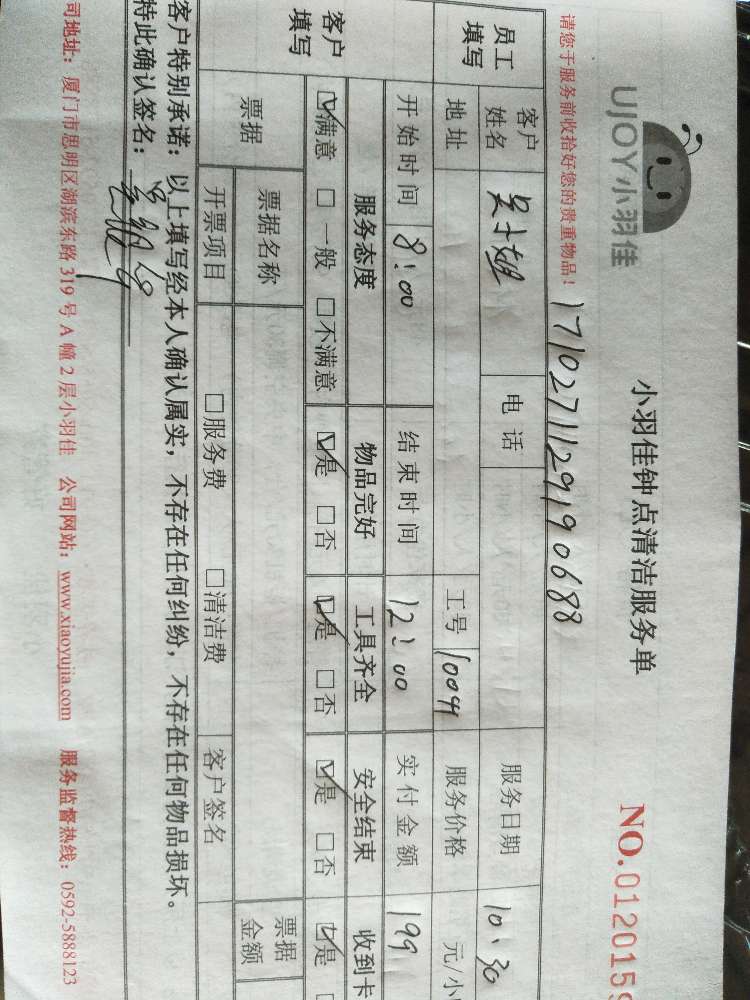 UJOY小羽佳
小羽佳钟点清洁服务单
NO.012015
请您于服务前收拾好您的贵重物品！
1710271129190688
员工填写 客户姓名 吴小姐 电话 服务日期 10.30
地址 工号 10094 服务价格 元/小
开始时间 8:00 结束时间 12:00 实付金额 199
客户填写 服务态度 物品完好 工具齐全 安全结束 收到卡
☑满意 □一般 □不满意 ☑是 □否 ☑是 □否 ☑是 □否 ☑是
票据 票据名称 票据金额
开票项目 □服务费 □清洁费 客户签名
客户特别承诺：以上填写经本人确认属实，不存在任何纠纷，不存在任何物品损坏。
特此确认签名：
司地址：厦门市思明区湖滨东路 319 号 A 幢 2 层小羽佳 公司网站：www.xiaoyujia.com 服务监督热线：0592-5888123